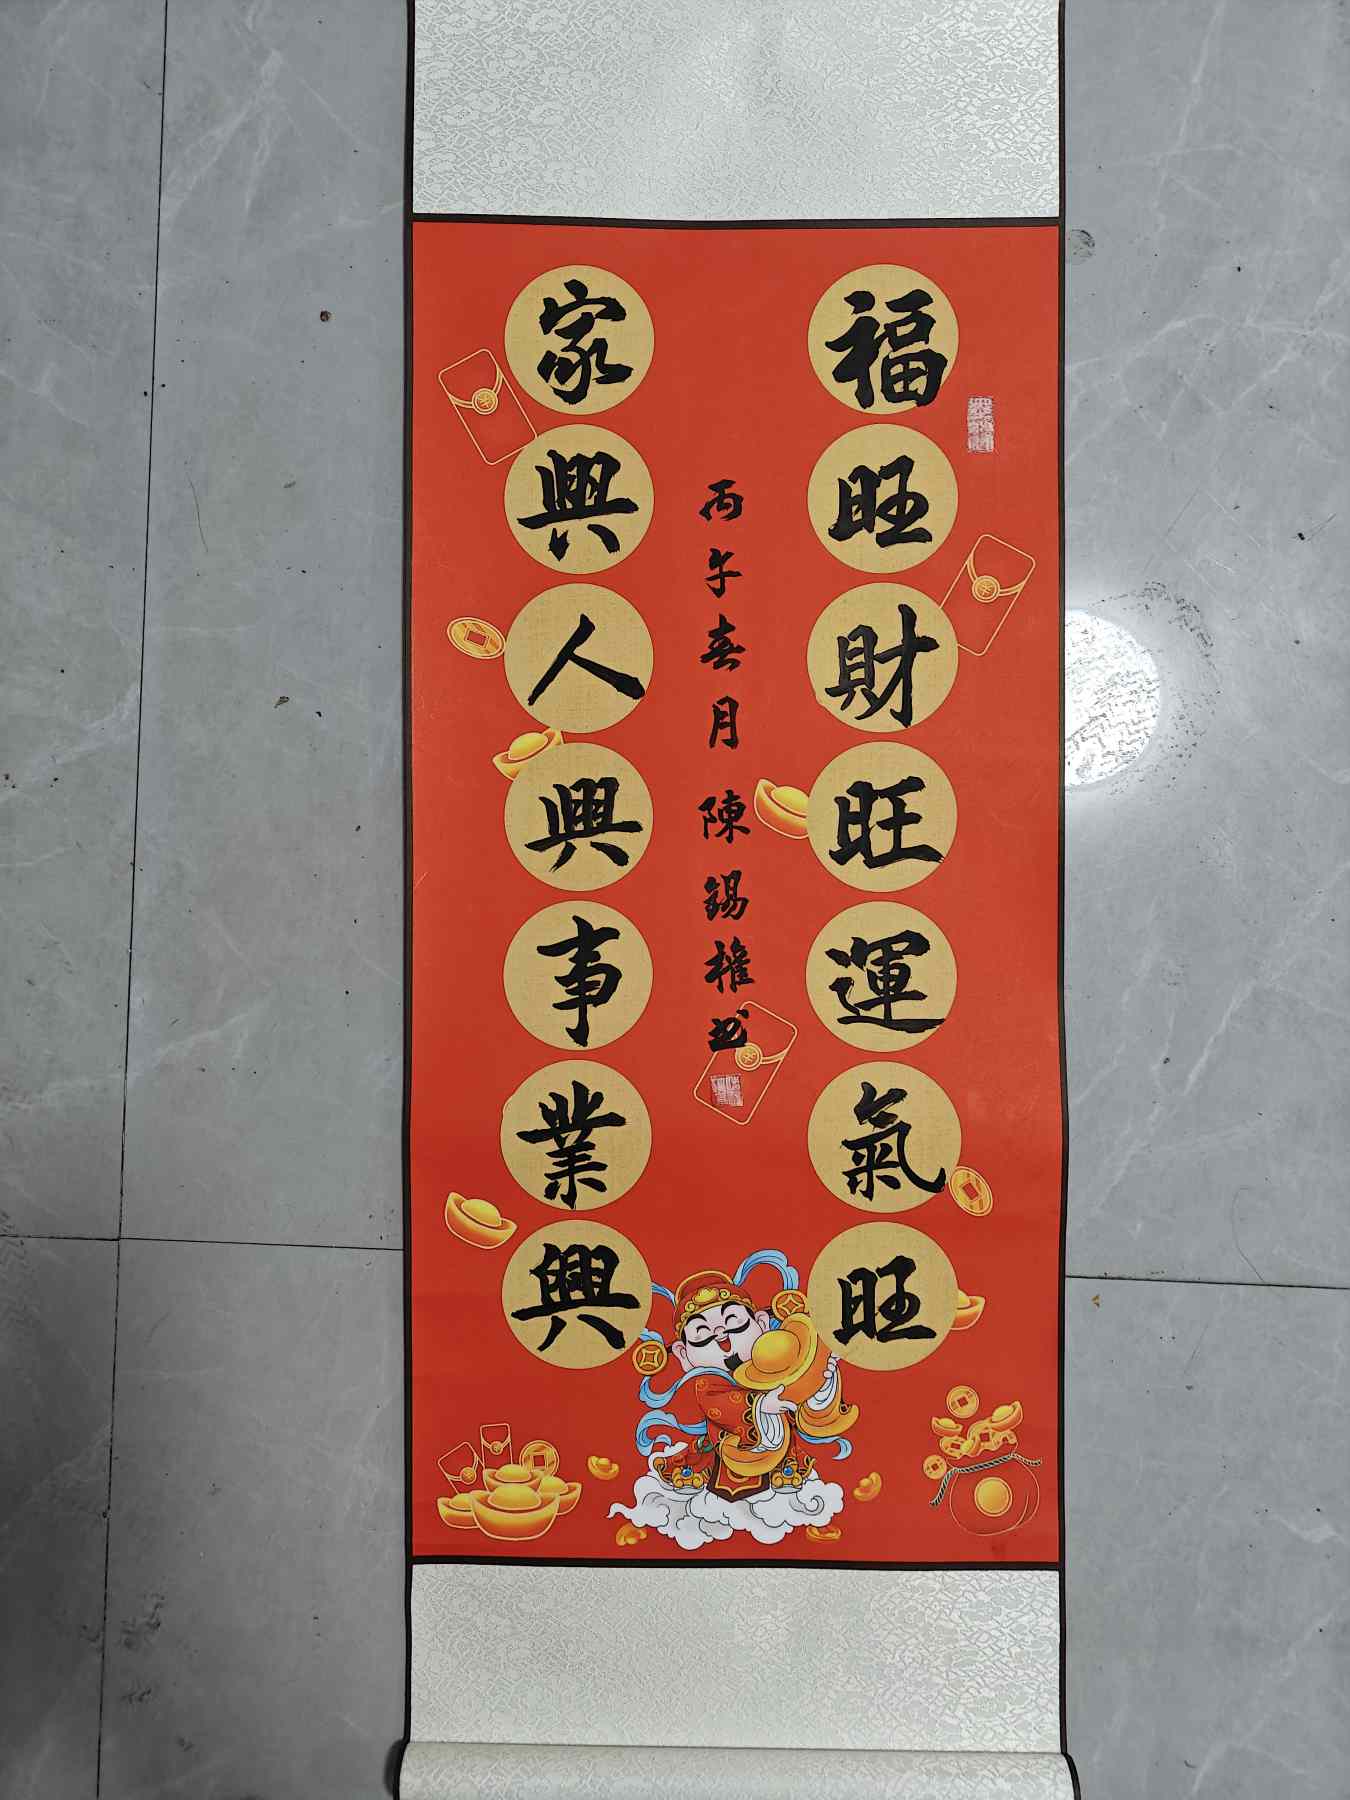 福旺財旺運氣旺
丙午春月 陳錫權书
家興人興事業興